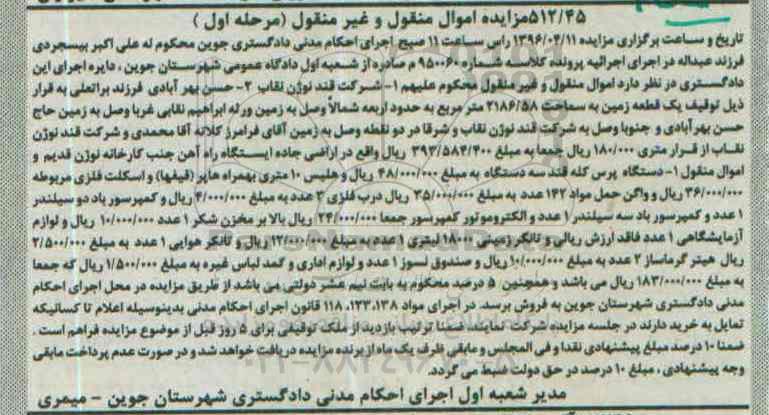 ۵۱۲/۴۵مزایده اموال منقول و غیر منقول (مرحله اول )
تاریخ و ساعت برگزاری مزایده ۱۳۹۶/۰۴/۱۱ راس ساعت ۱۱ صبح اجرای احکام مدنی دادگستری جوین محکوم له علی اکبر بیسجردی
فرزند عبداله در اجرای اجرائیه پرونده کلاسه شماره ۹۵۰۰۶۰ م صادره از شعبه اول دادگاه عمومی شهرستان جوین ، دایره اجرای این
دادگستری در نظر دارد اموال منقول و غیر منقول محکوم علیهم ۱- شرکت قند نوژن نقاب ۲- حسن بهر آبادی فرزند براتعلی به قرار
ذیل توقیف یک قطعه زمین به مساحت ۲۱۸۶/۵۸ متر مربع به حدود اربعه شمالاً وصل به زمین ورثه ابراهیم نقابی غربا وصل به زمین حاج
حسن بهرآبادی و جنوبا وصل به شرکت قند نوژن نقاب و شرقا در دو نقطه وصل به زمین آقای فرامرز کلاته آقا محمدی و شرکت قند نوژن
نقاب از قرار متری ۱۸۰/۰۰۰ ریال جمعا به مبلغ ۳۹۳/۵۸۴/۴۰۰ ریال واقع در اراضی جاده ایستگاه راه آهن جنب کارخانه نوژن قدیم و
اموال منقول ۱- دستگاه پرس کله قند سه دستگاه به مبلغ ۴۸/۰۰۰/۰۰۰ ریال و هلیس ۱۰ متری بهمراه هاپر (قیفها) و اسکلت فلزی مربوطه
۳۶/۰۰۰/۰۰۰ ریال و واگن حمل مواد ۱۴۲ عدد به مبلغ ۳۵/۰۰۰/۰۰۰ ریال درب فلزی ۳ عدد به مبلغ ۴/۰۰۰/۰۰۰ ریال و کمپرسور باد دو سیلندر
۱ عدد و کمپرسور باد سه سیلندر ۱ عدد و الکتروموتور کمپرسور جمعا ۲۴/۰۰۰/۰۰۰ ریال بالا بر مخزن شکر ۱ عدد ۱۰/۰۰۰/۰۰۰ ریال و لوازم
آزمایشگاهی ۱ عدد فاقد ارزش ریالی و تانکر زمینی ۱۸۰۰۰ لیتری ۱ عدد به مبلغ ۱۲/۰۰۰/۰۰۰ ریال و تانکر هوایی ۱ عدد به مبلغ ۲/۵۰۰/۰۰۰
ریال هیتر گرماساز ۲ عدد به مبلغ ۱۰/۰۰۰/۰۰۰ ریال و صندوق نسوز ۱ عدد و لوازم اداری و کمد لباس غیره به مبلغ ۱/۵۰۰/۰۰۰ ریال که جمعا
به مبلغ ۱۸۳/۰۰۰/۰۰۰ ریال می باشد و همچنین ۵ درصد محکوم به بابت نیم عشر دولتی می باشد از طریق مزایده در محل اجرای احکام
مدنی دادگستری شهرستان جوین به فروش برسد. در اجرای مواد ۱۱۸،۱۳۳،۱۳۸ قانون اجرای احکام مدنی بدینوسیله اعلام تا کسانیکه
تمایل به خرید دارند در جلسه مزایده شرکت نمایند. ضمنا ترتیب بازدید از ملک توقیفی برای ۵ روز قبل از موضوع مزایده فراهم است .
ضمنا ۱۰ درصد مبلغ پیشنهادی نقدا و فی المجلس و مابقی ظرف یک ماه از برنده مزایده دریافت خواهد شد و در صورت عدم پرداخت مابقی
وجه پیشنهادی ، مبلغ ۱۰ درصد در حق دولت ضبط می گردد.
مدیر شعبه اول اجرای احکام مدنی دادگستری شهرستان جوین - میمری